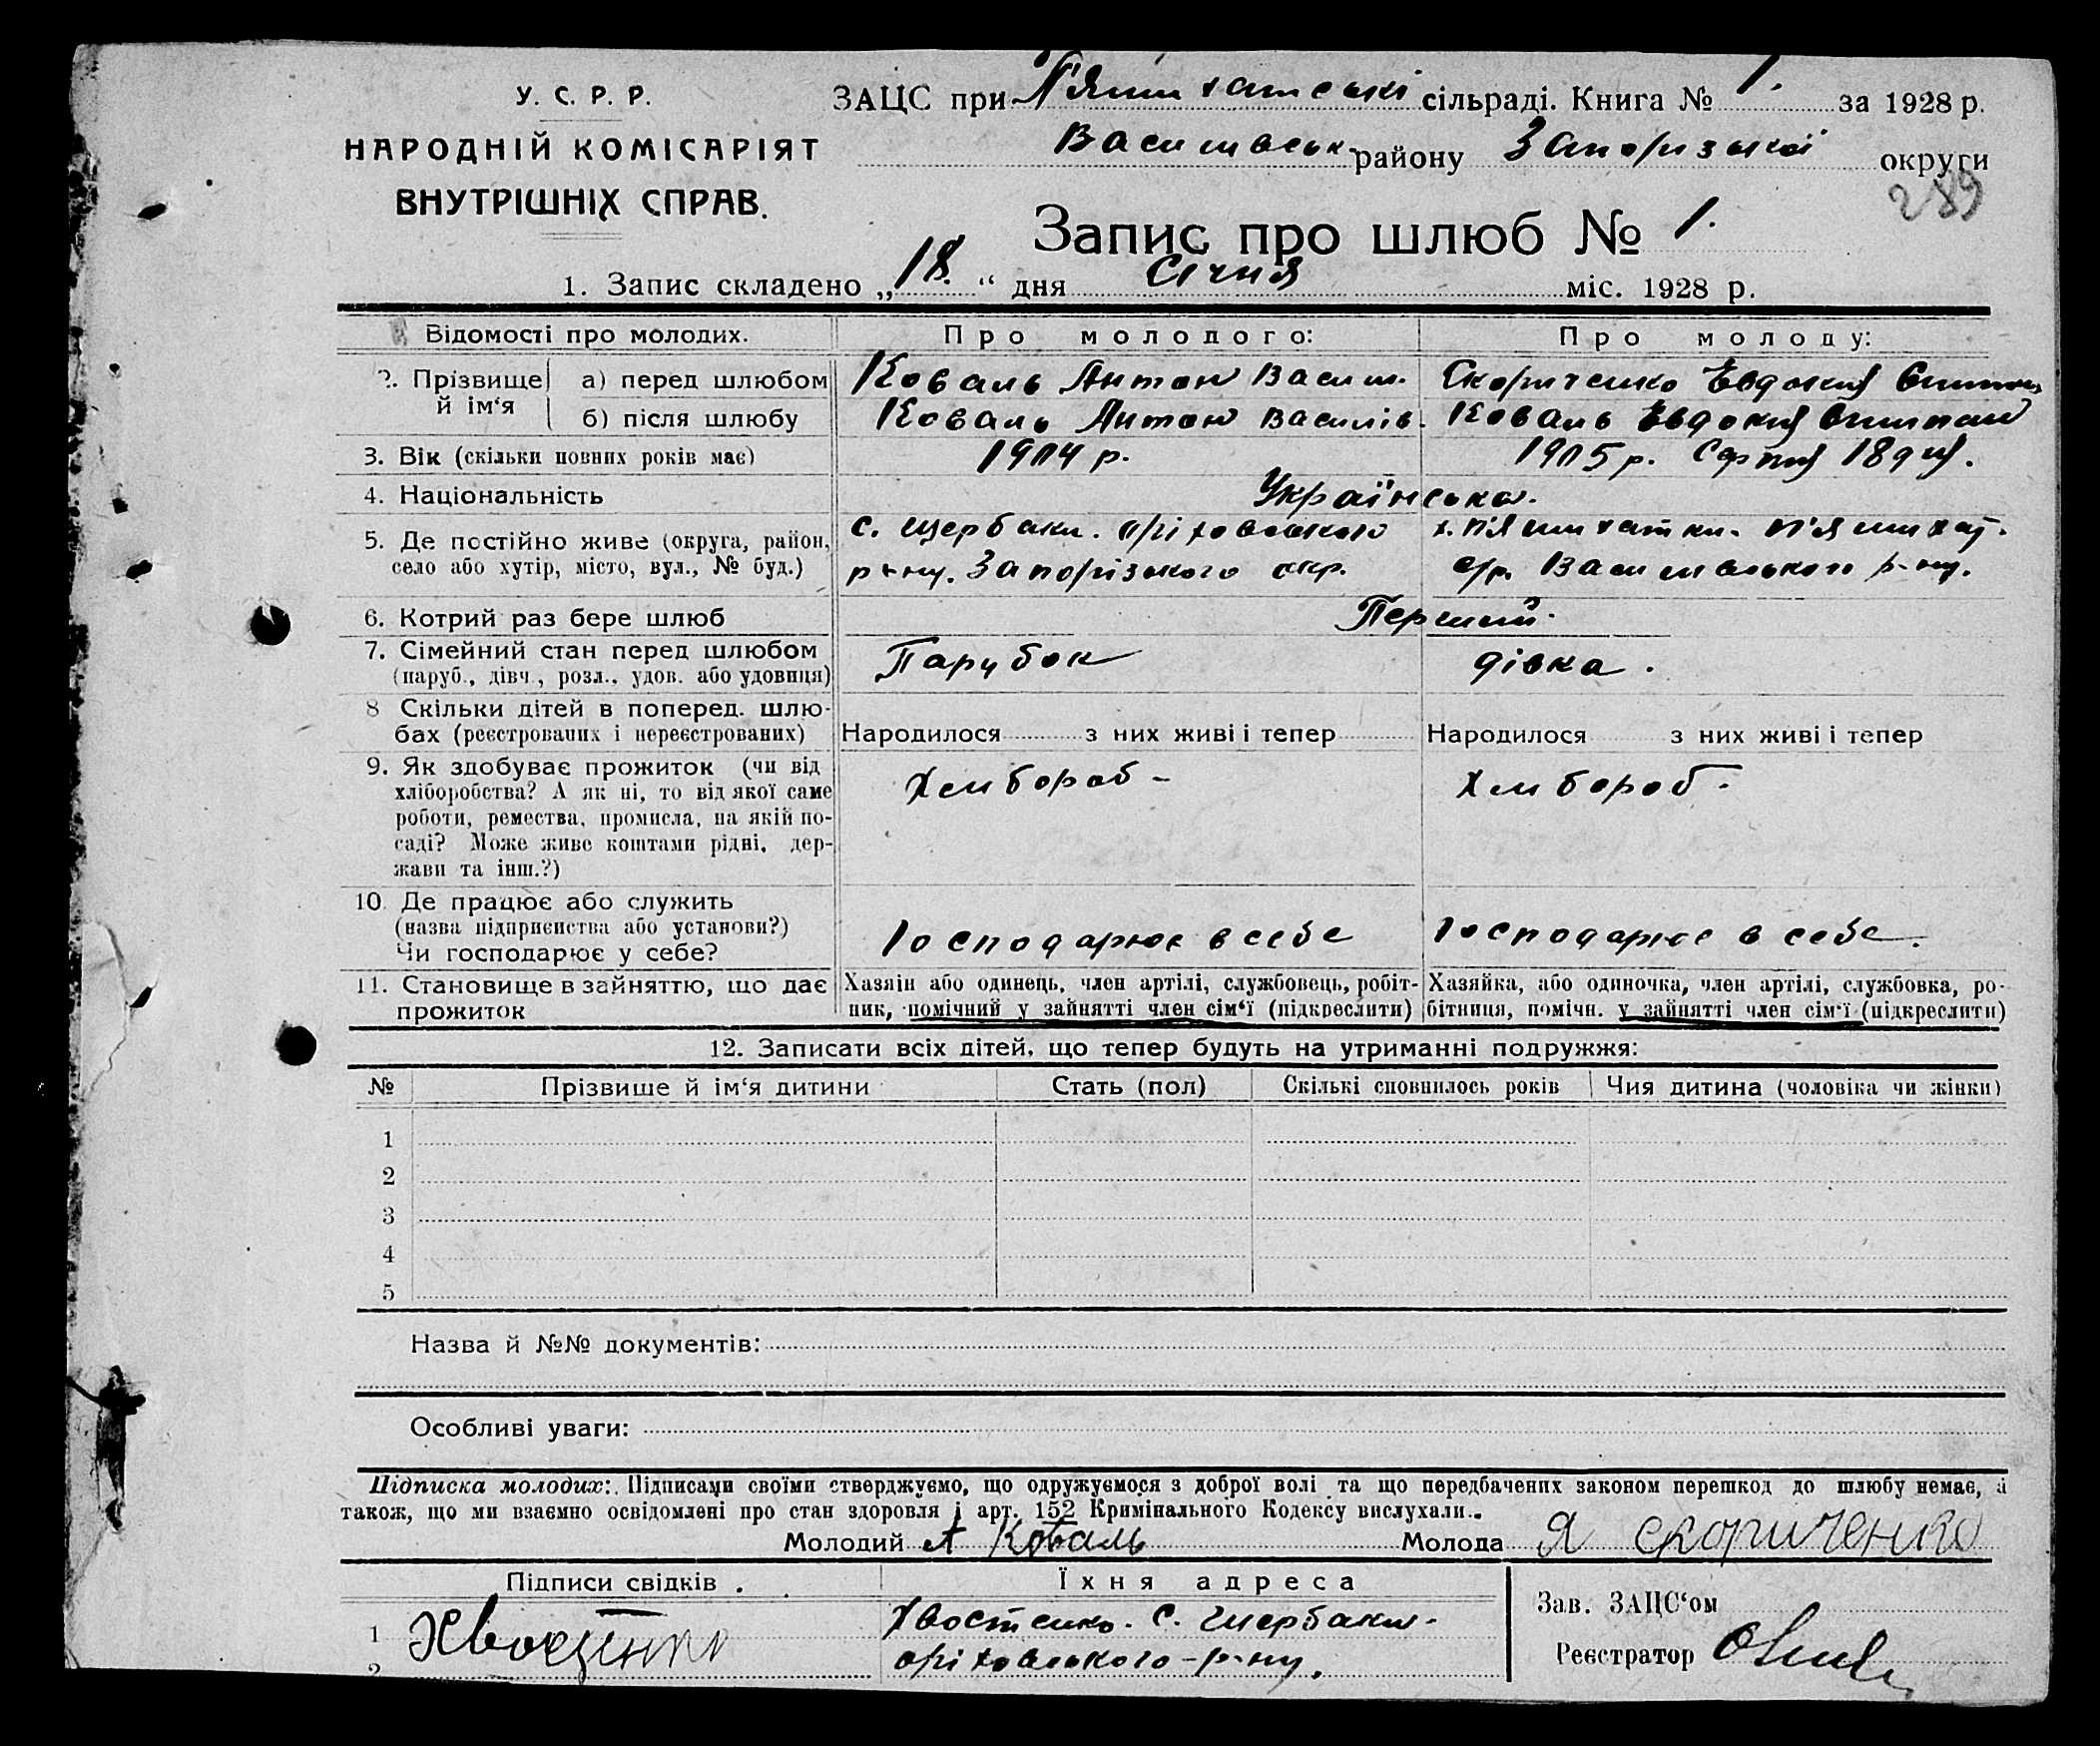 У. С. Р. Р.
НАРОДНІЙ КОМІСАРІЯТ
ВНУТРІШНІХ СПРАВ.
ЗАЦС при П'ятихатські сільраді. Книга № 1. за 1928 р.
Василівськ. району Запорізької округи
289
Запис про шлюб № 1.
1. Запис складено „18." дня Січня міс. 1928 р.
Відомості про молодих. Про молодого: Про молоду:
2. Прізвище й ім'я а) перед шлюбом Коваль Антон Васил. Скориченко Евдокия
б) після шлюбу Коваль Антон Василів. Коваль Евдокия
3. Вік (скільки повних років має) 1904 р. 1905 р. Серпня 18 дня.
4. Національність Українська.
5. Де постійно живе (округа, район, с. Щербаки. Оріховського х. П'ятихатки. П'ятихат.
село або хутір, місто, вул., № буд.) р-ну. Запорізького окр. с/р. Василівського р-ну.
6. Котрий раз бере шлюб Перший.
7. Сімейний стан перед шлюбом Парубок дівка.
(паруб., дівч., розл., удов. або удовиця)
8 Скільки дітей в поперед. шлю-
бах (реєстрованих і нереєстрованих) Народилося з них живі і тепер Народилося з них живі і тепер
9. Як здобуває прожиток (чи від Хлибороб - Хлибороб.
хліборобства? А як ні, то від якої саме
роботи, ремества, промисла, на якій по-
саді? Може живе коштами рідні, дер-
жави та інш.?)
10. Де працює або служить
(назва підприєиства або установи?) Господарює в себе Господарює в себе.
Чи господарює у себе?
11. Становище в зайняттю, що дає Хазяін або одинець, член артілі, службовець, робіт- Хазяйка, або одиночка, член артілі, службовка, ро-
прожиток ник, помічний у зайнятті член сім'ї (підкреслити) бітниця, помічн. у зайнятті член сім'ї (підкреслити)
12. Записати всіх дітей, що тепер будуть на утриманні подружжя:
№ Прізвише й ім'я дитини Стать (пол) Скількі сповнилось років Чия дитина (чоловіка чи жінки)
1
2
3
4
5
Назва й №№ документів:
Особливі уваги:
Підписка молодих: Підписами своїми стверджуємо, що одружуємося з доброї волі та що передбачених законом перешкод до шлюбу немає, а
також, що ми взаємно освідомлені про стан здоровля і арт. 152 Кримінального Кодексу вислухали.
Молодий А Коваль Молода Я скориченко
Підписи свідків. Їхня адреса
1 Хвостенко. С. Щербаки.
2 Оріховського - р-ну.
Зав. ЗАЦС'ом
Реєстратор